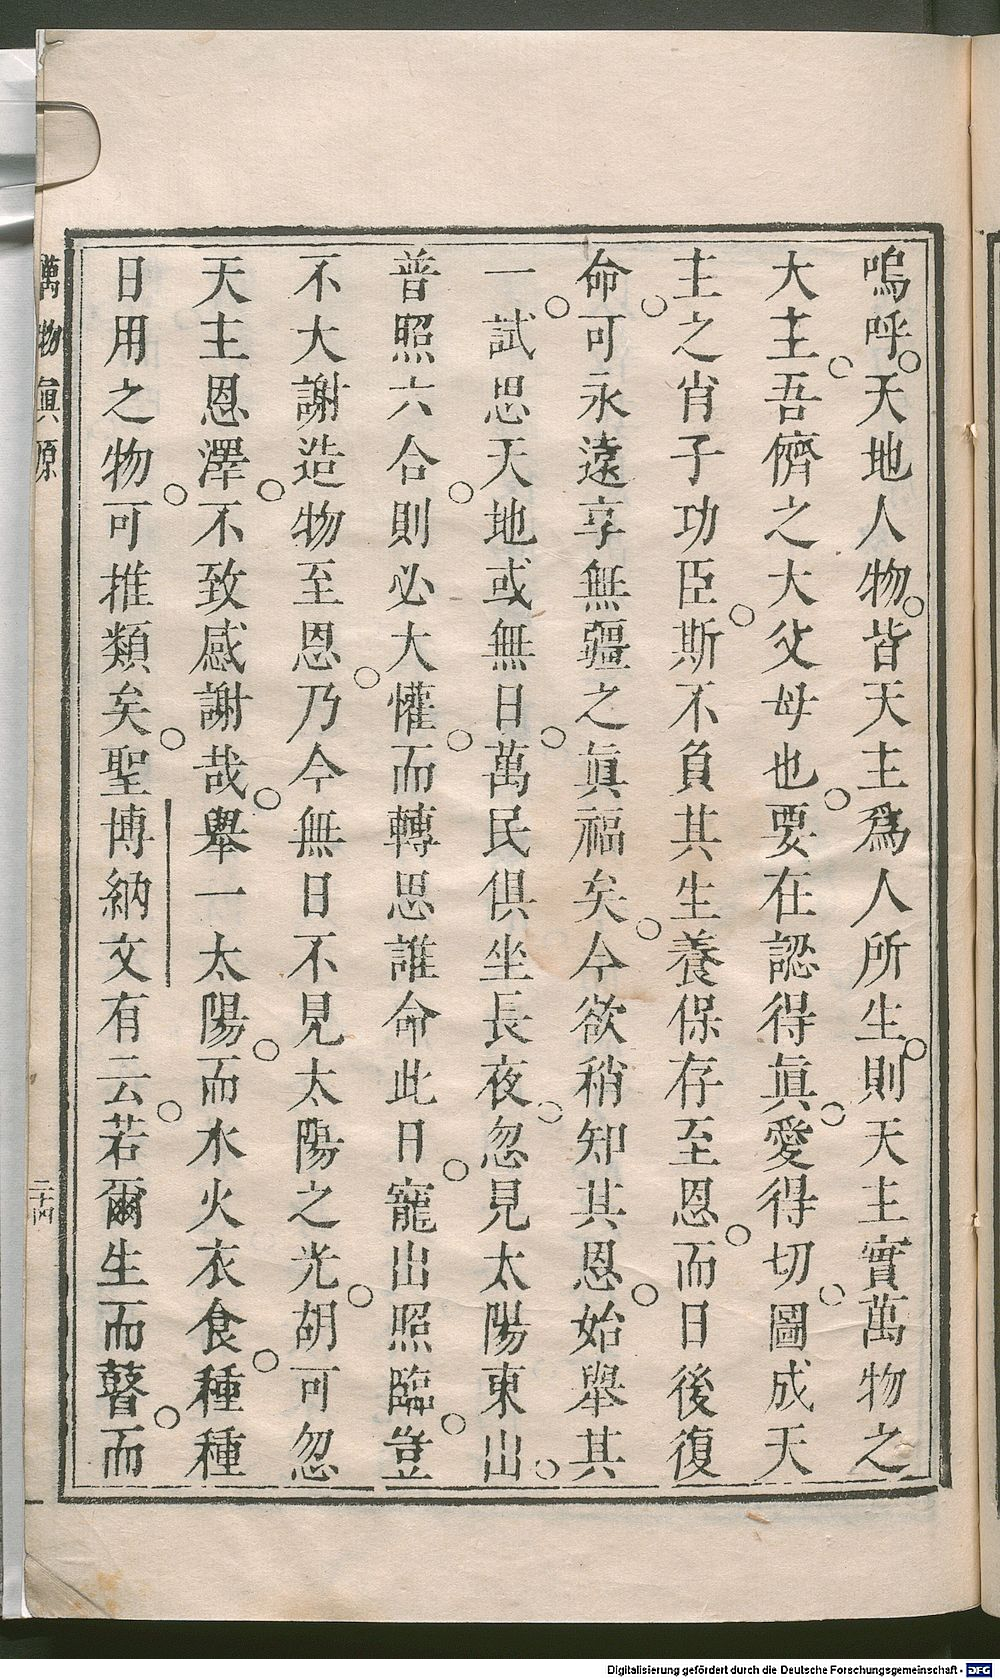 嗚呼。天地人物。皆天主爲人所生。則天主實萬物之
大主。吾儕之大父母也。要在認得眞。愛得切。圖成天
主之肖子功臣。斯不負其生養保存至恩。而日後復
命。可永遠享無疆之眞福矣。今欲稍知其恩。始舉其
一。試思天地或無日。萬民俱坐長夜。忽見太陽東出。
普照六合。則必大懽。而轉思誰命此日。寵出照臨。豈
不大謝造物至恩。乃今無日不見太陽之光。胡可忽
天主恩澤。不致感謝哉。舉一太陽。而水火衣食。種種
日用之物。可推類矣。聖博納文有云。若爾生而瞽。而
萬物眞原
二十四
Digitalisierung gefördert durch die Deutsche Forschungsgemeinschaft - DFG